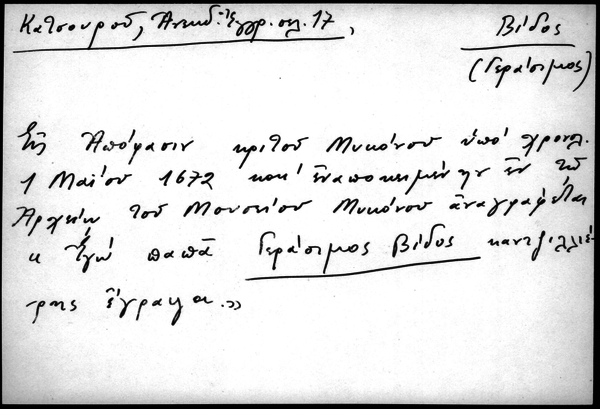 Κατσουροῦ, Ἀνεκδ. Ἔγγρ. σελ. 17,
Βίδος
(Γεράσιμος)
Εἰς Ἀπόφασιν κριτοῦ Μυκόνου ὑπό χρονολ.
1 Μαΐου 1672 καί ἐναποκειμένην ἐν τῷ
Ἀρχείῳ τοῦ Μουσείου Μυκόνου ἀναγράφεται
« Ἐγώ παπᾶ Γεράσιμος Βίδος καντζιλλιέ-
ρης ἔγραψα.»